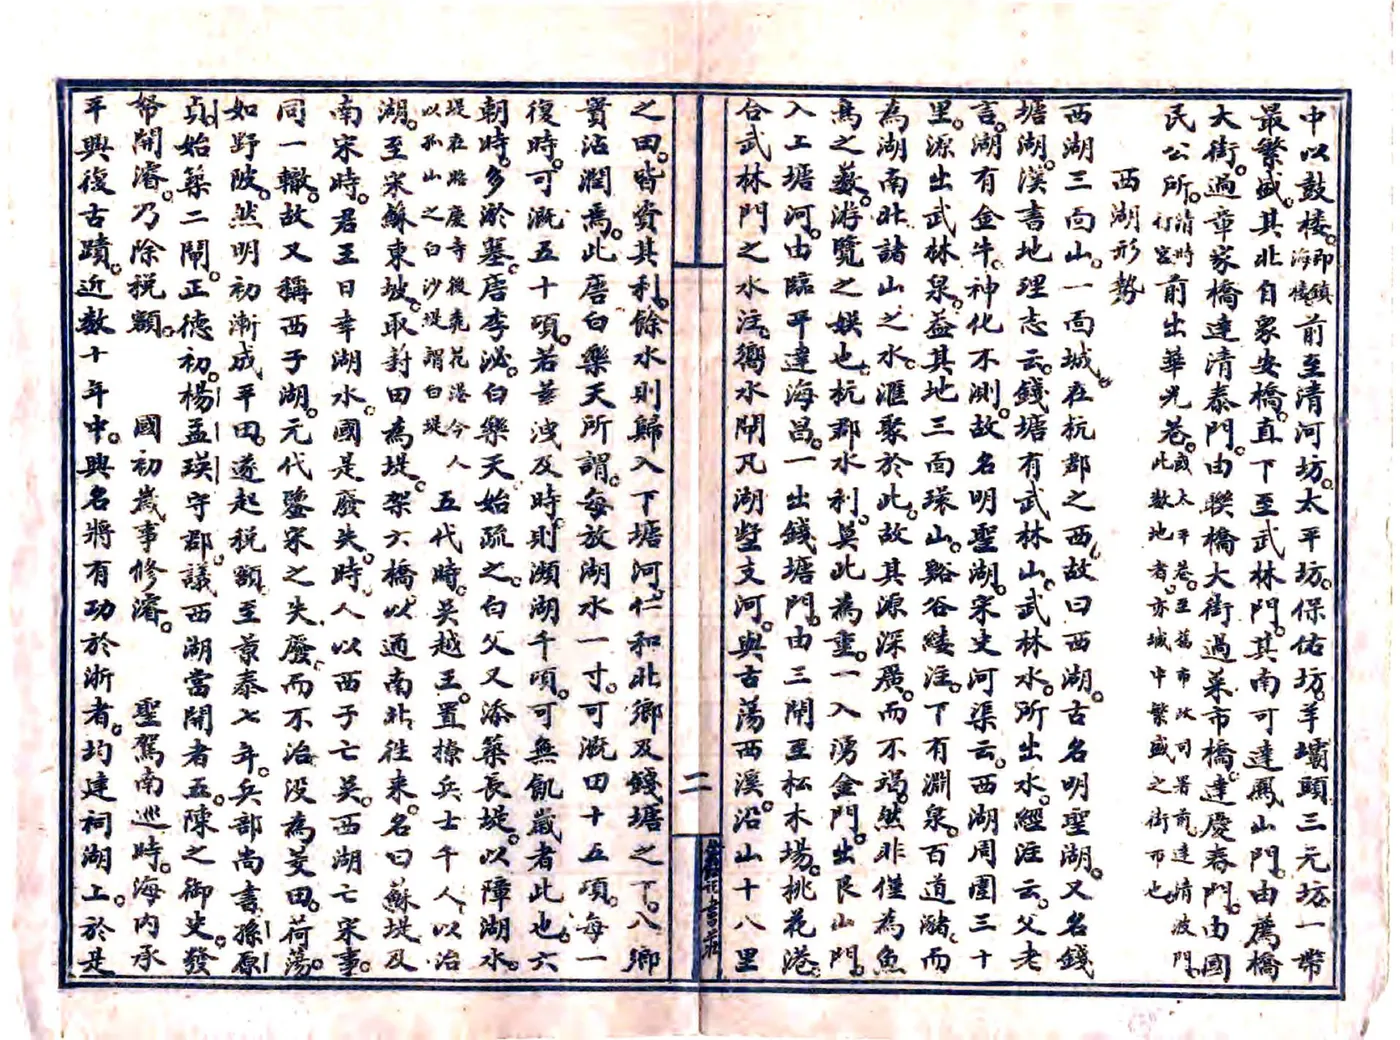 中以鼓樓。即鎮海樓前至清河坊。太平坊。保佑坊。羊壩頭三元坊一帶
最繁盛。其北自眾安橋。直下至武林門。其南可達鳳山門。由薦橋
大街。過章家橋達清泰門。由聯橋大街過菜市橋。達慶春門。由國
民公所。清時行宮前出華光巷。或太平巷。至舊市政司署前達清波門。此數地者。亦城中繁盛之街市也。
西湖形勢
西湖三面山。一面城。在杭郡之西。故曰西湖。古名明聖湖。又名錢
塘湖。漢書地理志云。錢塘有武林山。武林水。所出水經注云。父老
言。湖有金牛。神化不測。故名明聖湖。宋史河渠云。西湖周圍三十
里。源出武林泉。蓋其地三面環山。谿谷縷注。下有淵泉。百道瀦。而
為湖南北諸山之水。滙聚於此。故其源深廣。而不竭。然非僅為魚
鳥之藪。游覽之娛也。杭郡水利。莫此為重。一入湧金門。出艮山門。
入上塘河。由臨平達海昌。一出錢塘門。由三閘至松木場。桃花港。
合武林門之水注。嚮水閘凡湖墅支河。與古蕩西溪。沿山十八里
二
之田。皆資其利。餘水則歸入下塘河。仁和北鄉及錢塘之下。八鄉
實沾潤焉。此唐白樂天所謂。每放湖水一寸。可溉田十五頃。每一
復時。可溉五十頃。若莖洩及時。則瀕湖千頃。可無飢歲者此也。六
朝時。多淤墓。唐李泌。白樂天始疏之。白父又添築長堤。以障湖水。
堤在昭慶寺後桃花港今人以孤山之白沙堤謂白堤 五代時。吳越王。置撩兵士千人。以治
湖。至宋蘇東坡。取葑田為堤。架六橋。以通南北往来。名曰蘇堤及
南宋時。君王日幸湖水。國是廢失。時人以西子亡吳。西湖亡宋事。
同一轍。故又稱西子湖。元代鑒宋之失廢。而不治没為茭田。荷蕩。
如野陂。然明初漸成平田。遂起税額。至景泰七年。兵部尚書孫原
貞始築二閘。正德初。楊孟瑛守郡。議西湖當開者五。陳之御史。發
帑開濬。乃除税額。 國初歲事修濬。 聖駕南巡時。海内承
平興復古蹟。近数十年中。興名將有功於浙者。均建祠湖上。於是